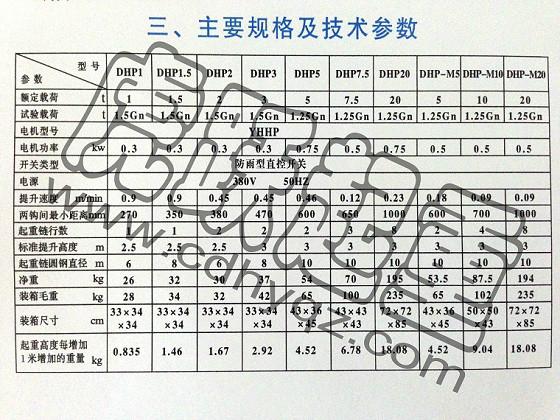 三、主要规格及技术参数
型号 参数 DHP1 DHP1.5 DHP2 DHP3 DHP5 DHP7.5 DHP20 DHP-M5 DHP-M10 DHP-M20
额定载荷 t 1 1.5 2 3 5 7.5 20 5 10 20
试验载荷 t 1.5Gn 1.5Gn 1.5Gn 1.5Gn 1.25Gn 1.25Gn 1.25Gn 1.25Gn 1.25Gn 1.25Gn
电机型号 YHHP
电机功率 kw 0.3 0.3 0.3 0.3 0.75 0.5 0.75 0.5 0.5 0.75
开关类型 防雨型直控开关
电源 380V 50HZ
提升速度 m/min 0.9 0.9 0.45 0.45 0.46 0.12 0.23 0.18 0.09 0.09
两钩间最小距离mm 270 350 380 470 600 650 1000 600 700 1000
起重链行数 1 1 2 2 2 3 8 2 4 8
标准提升高度 m 2.5 2.5 2.5 3 3 3 3 3 3 3
起重链圆钢直径 m 6 8 6 8 10 10 10 10 10 10
净重 kg 26 32 30 37 54 70 195 53.5 87.5 194
装箱毛重 kg 28 34 32 42 65 100 235 65 102 235
装箱尺寸 cm 33×34×34 33×34×34 33×34×34 33×34×34 43×36×45 43×43×43 72×72×85 43×36×45 50×50×43 72×72×85
起重高度每增加
1米增加的重量 kg 0.835 1.46 1.67 2.92 4.52 6.78 18.08 4.52 9.04 18.08
www.cdhyqz.com